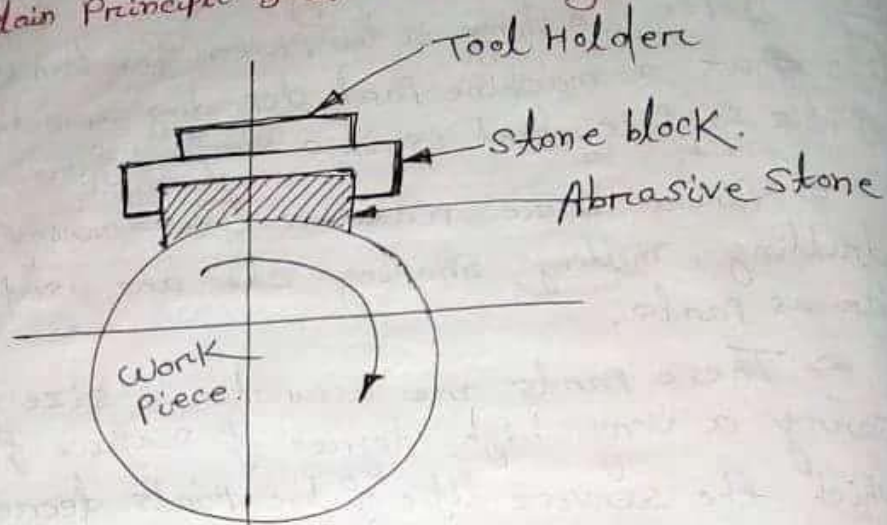 Principle
Tool Holder
Stone block.
Abrasive Stone
Work
Piece.